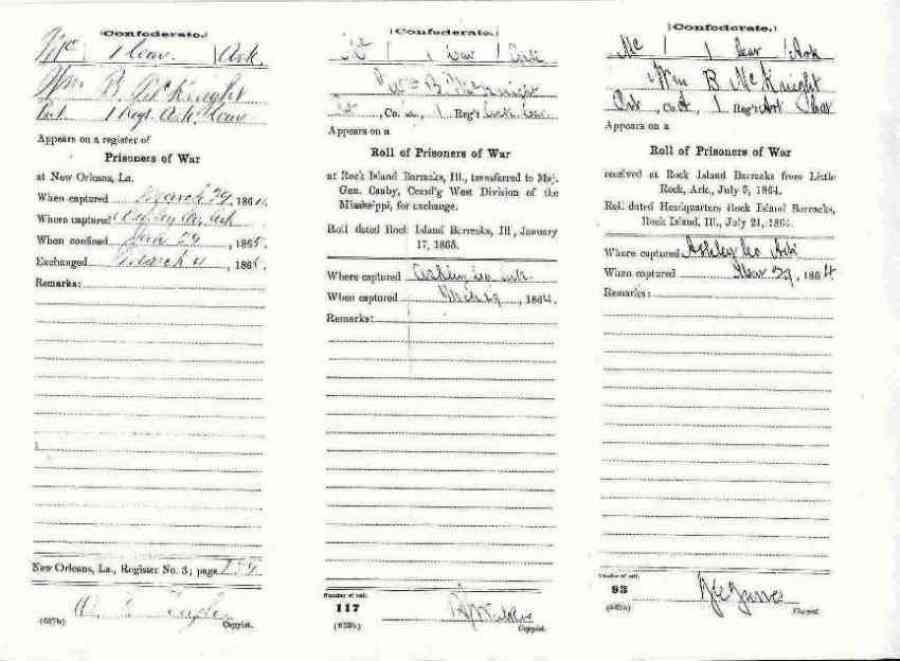 (Confederate.)
Mc | 1 Cav. | Ark.
Wm. B. McKnight
Pvt. 1 Regt. Ark. Cav
Appears on a register of
Prisoners of War
at New Orleans, La.
When captured March 29, 1864.
Where captured Ashley Co, Ark
When confined 29, 1865.
Exchanged March 4, 1865.
Remarks:
New Orleans, La., Register No. 3; page
(637b) Copyist.
(Confederate.)
Mc | 1 Cav | Ark
Wm B McKnight
Pvt, Co. A, 1 Reg't Ark. Cav.
Appears on a
Roll of Prisoners of War
at Rock Island Barracks, Ill., transferred to Maj.
Gen. Canby, Comd'g West Division of the
Mississippi, for exchange.
Roll dated Rock Island Barracks, Ill, January
17, 1865.
Where captured Ashley Co. Ark.
When captured Mch 29, 1864.
Remarks:
Number of roll:
117
Copyist.
(Confederate.)
Mc | 1 Cav | Ark
Wm B McKnight
Pvt, Co. A, 1 Reg't Ark Cav
Appears on a
Roll of Prisoners of War
received at Rock Island Barracks from Little
Rock, Ark., July 5, 1864.
Roll dated Headquarters Rock Island Barracks,
Rock Island, Ill., July 21, 1864.
Where captured Ashley Co Ark
When captured Mar 29, 1864
Remarks:
Number of roll:
93
Copyist.